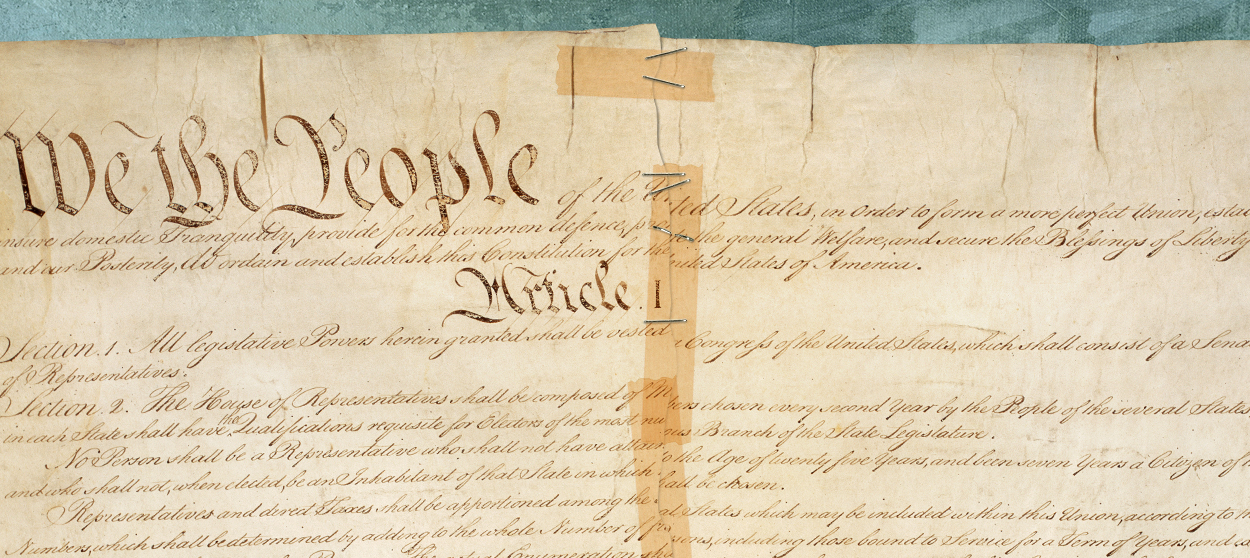 We the People of the United States, in Order to form a more perfect Union, esta
nsure domestic Tranquility, provide for the common defence, the general Welfare, and secure the Blessings of Liberty
and our Posterity, do ordain and establish this Constitution for the United States of America.
Article. I
Section. 1. All legislative Powers herein granted shall be vested Congress of the United States, which shall consist of a Sena
of Representatives.
Section. 2. The House of Representatives shall be composed of M bers chosen every second Year by the People of the several States
in each State shall have the Qualifications requisite for Electors of the most nu rous Branch of the State Legislature.
No Person shall be a Representative who shall not have attain to the Age of twenty five Years, and been seven Years a Citizen of
and who shall not, when elected, be an Inhabitant of that State in which shall be chosen.
Representatives and direct Taxes shall be apportioned among the al States which may be included within this Union, according to
Numbers, which shall be determined by adding to the whole Number of ons, including those bound to Service for a Term of Years, and
The actual Enumeration